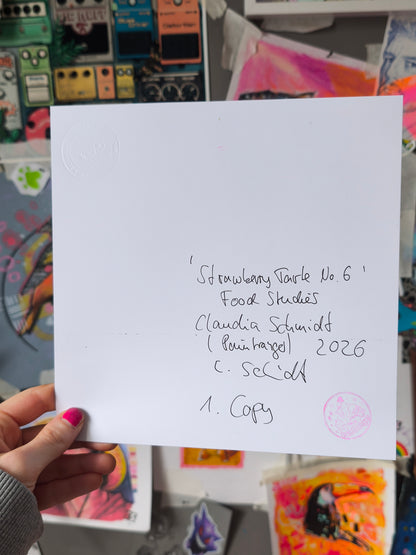 'Strawberry Tarte No. 6'
Food Studies
Claudia Schmidt
2026
1. Copy